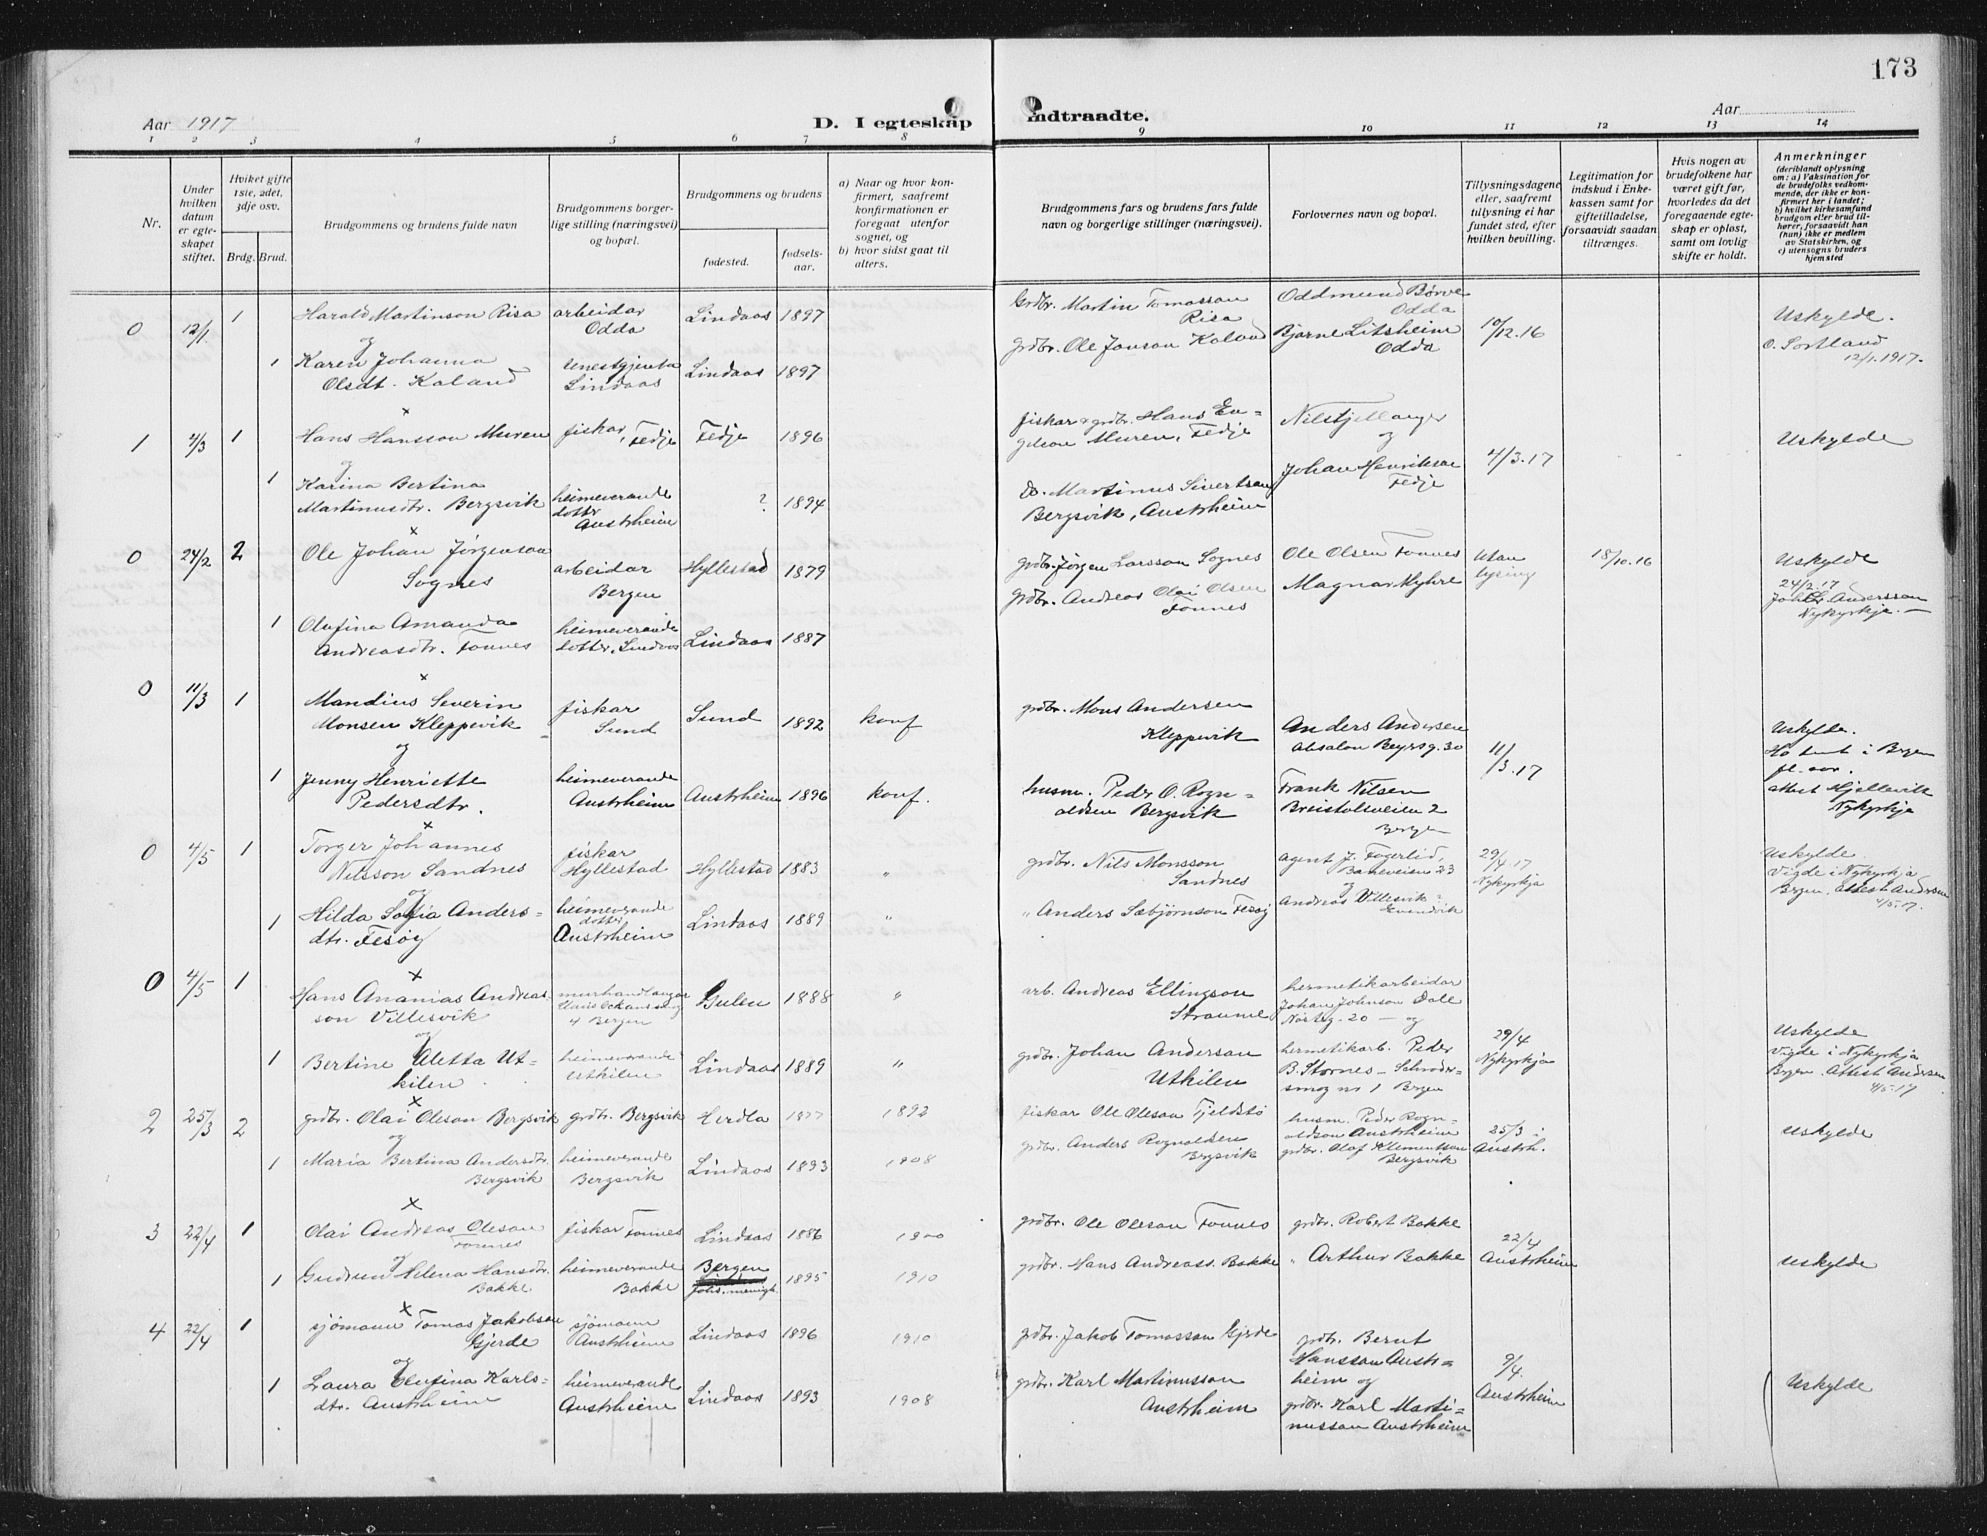 173
Aar 1917
D. I egteskap indtraadte.
Aar
1 2 3 4 5 6 7 8 9 10 11 12 13 14
Nr.
Under hvilken datum er egteskapet stiftet.
Hvilket gifte 1ste, 2det, 3dje osv.
Brdg. Brud.
Brudgommens og brudens fulde navn
Brudgommens borgerlige stilling (næringsvei) og bopæl.
Brudgommens og brudens
fødested.
fødselsaar.
a) Naar og hvor konfirmert, saafremt konfirmationen er foregaat utenfor sognet, og
b) hvor sidst gaat til alters.
Brudgommens fars og brudens fars fulde navn og borgerlige stillinger (næringsvei).
Forlovernes navn og bopæl.
Tillysningsdagene eller, saafremt tillysning ei har fundet sted, efter hvilken bevilling.
Legitimation for indskud i Enkekassen samt for giftetilladelse, forsaavidt saadan tiltrænges.
Hvis nogen av brudefolkene har været gift før, hvorledes da det foregaaende egteskap er opløst, samt om lovlig skifte er holdt.
Anmerkninger
(deriblandt oplysning om: a) Vaksination for de brudefolks vedkommende, der ikke er konfirmert her i landet; b) hvilket kirkesamfund brudgom eller brud tilhører, forsaavidt han (hun) ikke er medlem av Statskirken, og c) utensogns bruders hjemsted
0 12/1 1 Harald Martinson Risa arbeidar Odda Lindaas 1897
Grdbr. Martin Tomasson Risa Oddmund Børve Odda
og
1 Karen Johanna Olsdt. Kaland Lindaas Lindaas 1897
grdbr. Ole Janson Kaland Bjarne Litsheim Odda 10/12.16
Uskylde. O. Sortland 12/1.1917.
1 4/3 1 Hans Hansson Muren fiskar, Fedje Fedje 1896
fiskar & grdbr. Hans Engelson Muren, Fedje Nils Fjellanger
og
1 Karina Bertina Martinusdtr. Bergsvik heimeverande dotter Austrheim ? 1894
Do. Martinus Sivertsen Bergsvik, Austrheim Johan Henriksen Fedje 4/3.17
Uskylde
0 24/2 2 Ole Johan Jørgenson Sognes arbeidar Bergen Hyllestad 1879
grdbr. Jørgen Larsson Sognes Ole Olsen Fonnes Utan lysing 18/10.16
1 Olufina Amanda Andreasdtr. Fonnes heimeverande dotter, Lindaas Lindaas 1887
grdbr. Andreas Olai Olsen Fonnes Magnar Myhre
Uskylde 24/2.17 Andersson Nykyrkja.
0 11/3 1 Mandius Severin Monsen Kleppevik fiskar Sund Sund 1892 konf
grdbr. Mons Andersen Kleppevik Anders Andersen Absalon Beyersg. 30
og
1 Jenny Henriette Pedersdtr. heimeverande Austrheim Austrheim 1896 konf.
husm. Peder O. Rognaldsen Bergsvik Frank Nilsen Breistølsveien 2 Bergen 11/3.17
Uskylde. i Bergen fl. aar. attest Hjellevik Nykyrkja
0 4/5 1 Torger Johannes Nilsson Sandnes fiskar Hyllestad Hyllestad 1883 "
grdbr. Nils Monsson Sandnes agent J. Fogerlid, 23 29/4.17 Nykyrkja
og
1 Hilda Sofia Andersdtr. Fesøy heimeverande dotter Austrheim Lindaas 1889 "
" Anders Sæbjørnson Fesøy Andreas Villesvik Evendvik
Uskylde. Vigde i Nykyrkja Bergen. Attest Andersen 4/5.17.
0 4/5 1 Hans Ananias Andreasson Villesvik murhandlangar 4 Bergen Gulen 1888 "
arb. Andreas Ellingson Straume hermetikarbeidar Johan Johnson Dale Nøsteg. 20 — og
og
1 Bertine Aletta Utkilen heimeverande Utkilen Lindaas 1889 "
grdbr. Johan Anderson Utkilen hermetikarb. Peder B. Stornes - Schrødersmog nr 1 Bergen 29/4 Nykyrkja
Uskylde Vigde i Nykyrkja Bergen. Attest Andersen 4/5.17
2 25/3 2 grdbr. Olai Oleson Bergsvik grdbr. Bergsvik Herdla 1877 1892
fiskar Ole Oleson Tjeldstø husm. Peder Rognaldson Austrheim
og
1 Maria Bertina Andersdtr. Bergsvik heimeverande Bergsvik Lindaas 1893 1908
grdbr. Anders Rognaldsen Bergsvik grdbr. Olaf Klementson Bergsvik 25/3 i Austrh.
Uskylde
3 22/4 1 Olai Andreas Oleson Fonnes fiskar Fonnes Lindaas 1886 1900
grdbr. Ole Oleson Fonnes grdbr. Robert Bakke
og
1 Gudrun Helena Hansdtr. Bakke heimeverande Bakke Bergen Johs. menigh. 1895 1910
grdbr. Hans Andreass. Bakke " Arthur Bakke 22/4 Austrheim
Uskylde
4 22/4 1 sjömann Tomas Jakobson Gjerde sjömann Austrheim Lindaas 1896 1910
grdbr. Jakob Tomasson Gjerde grdbr. Bernt Hansson Austrheim og
og
1 Laura Olufina Karlsdtr. Austrheim heimeverande Austrheim Lindaas 1893 1908
grdbr. Karl Martinusson Austrheim grdbr. Karl Martinusson Austrheim 9/4. Austrheim
Uskylde